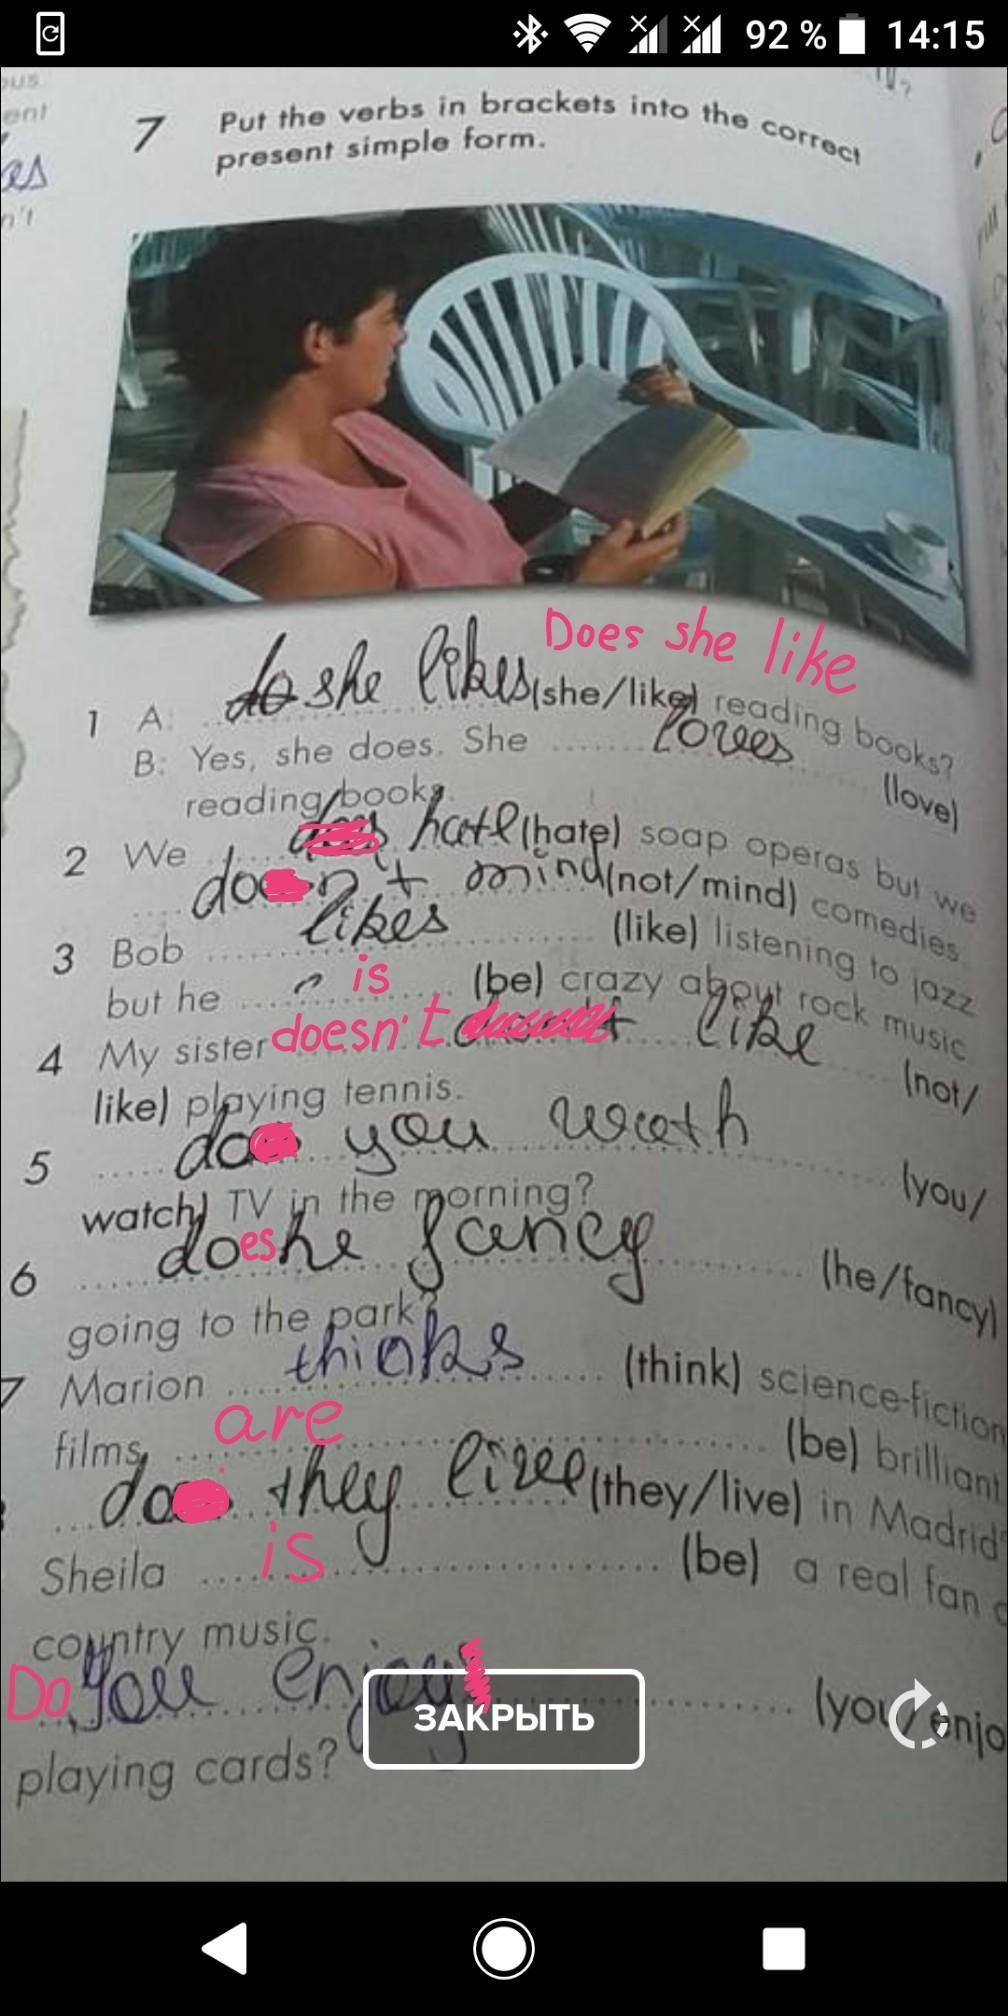 92 % 14:15
ous
ent
es
n't
7 Put the verbs in brackets into the correct
present simple form.
Does she like
1 A: do she likes (she/like) reading books?
B: Yes, she does. She loves (love)
reading books.
2 We does hate (hate) soap operas but we
don't mind (not/mind) comedies.
3 Bob likes (like) listening to jazz
but he is (be) crazy about rock music
4 My sister doesn't like (not/
like) playing tennis.
5 do you wath (you/
watch) TV in the morning?
6 does he fancy (he/fancy)
going to the park?
7 Marion thinks (think) science-fiction
films are (be) brilliant
do they live (they/live) in Madrid
Sheila is (be) a real fan o
country music.
Do you enjoy (you/enjo
ЗАКРЫТЬ
playing cards?